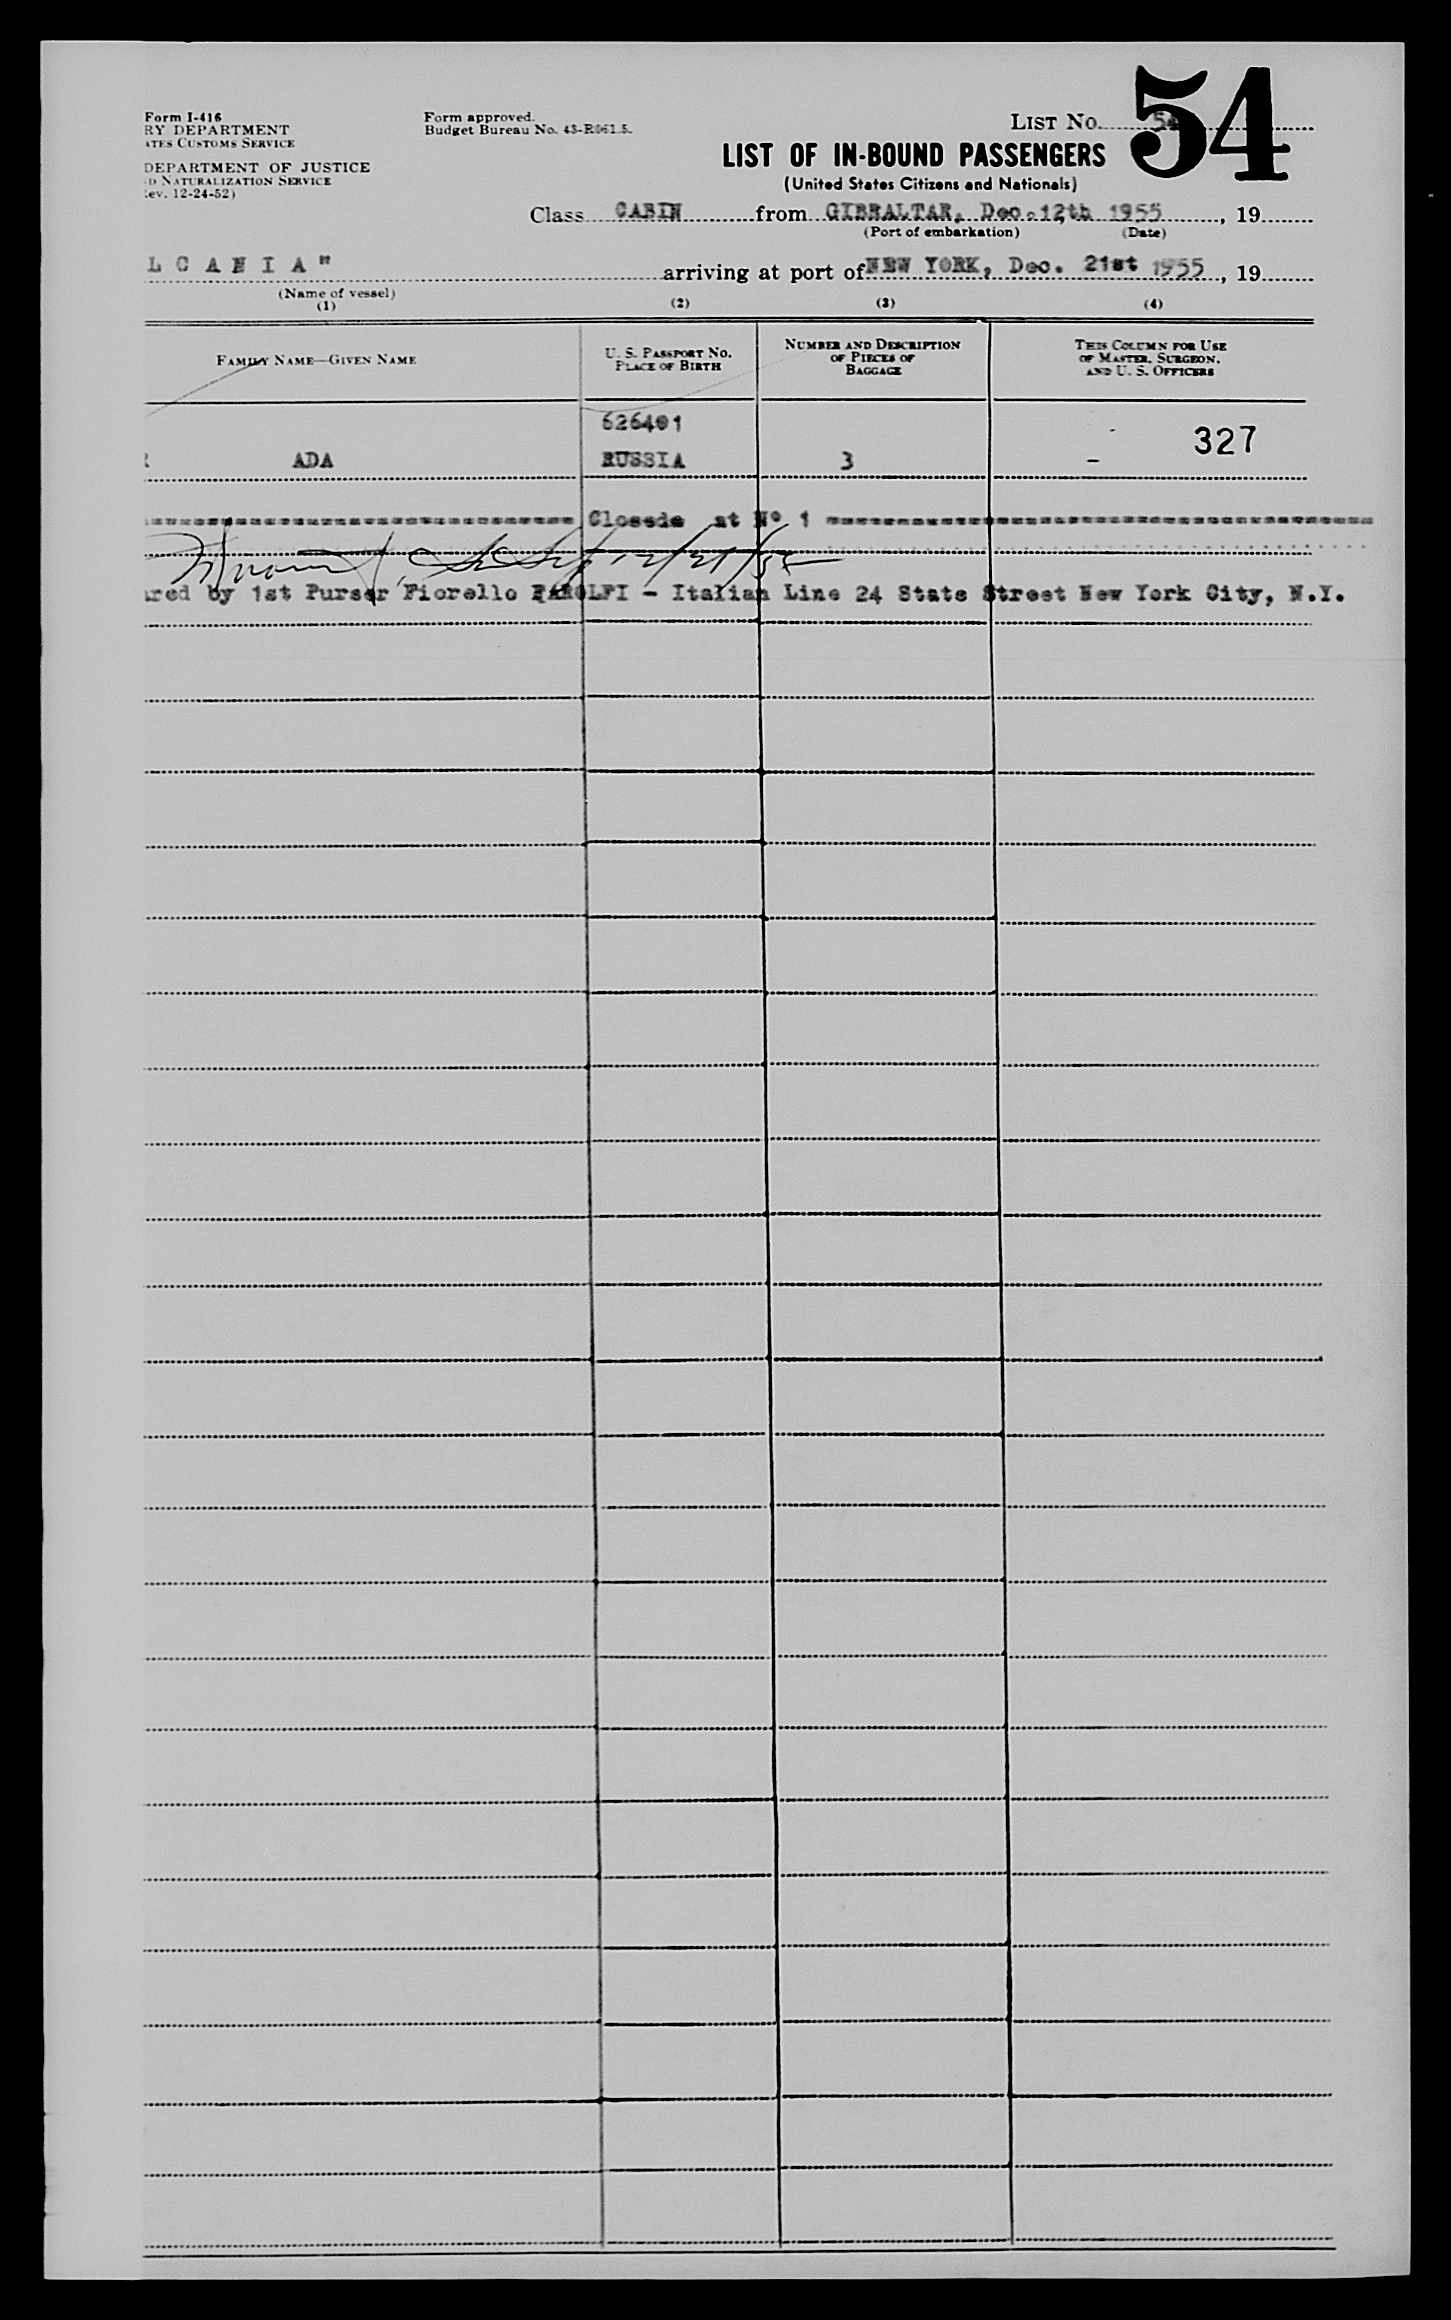 Form I-416
RY DEPARTMENT
ATES CUSTOMS SERVICE
DEPARTMENT OF JUSTICE
D NATURALIZATION SERVICE
ev. 12-24-52)
Form approved.
Budget Bureau No. 43-R061.5.
LIST No. 54
54
LIST OF IN-BOUND PASSENGERS
(United States Citizens and Nationals)
Class CABIN from GIBRALTAR, Dec. 12th 1955, 19
(Port of embarkation) (Date)
L C A N I A" arriving at port of NEW YORK, Dec. 21st 1955, 19
(Name of vessel)
(1) (2) (3) (4)
FAMILY NAME—GIVEN NAME
U. S. PASSPORT NO.
PLACE OF BIRTH
NUMBER AND DESCRIPTION
OF PIECES OF
BAGGAGE
THIS COLUMN FOR USE
OF MASTER, SURGEON,
AND U. S. OFFICERS
626401
327
R ADA RUSSIA 3 -
Closede at Nº 1
12/21/55
ared by 1st Purser Fiorello FAROLFI - Italian Line 24 State Street New York City, N.Y.